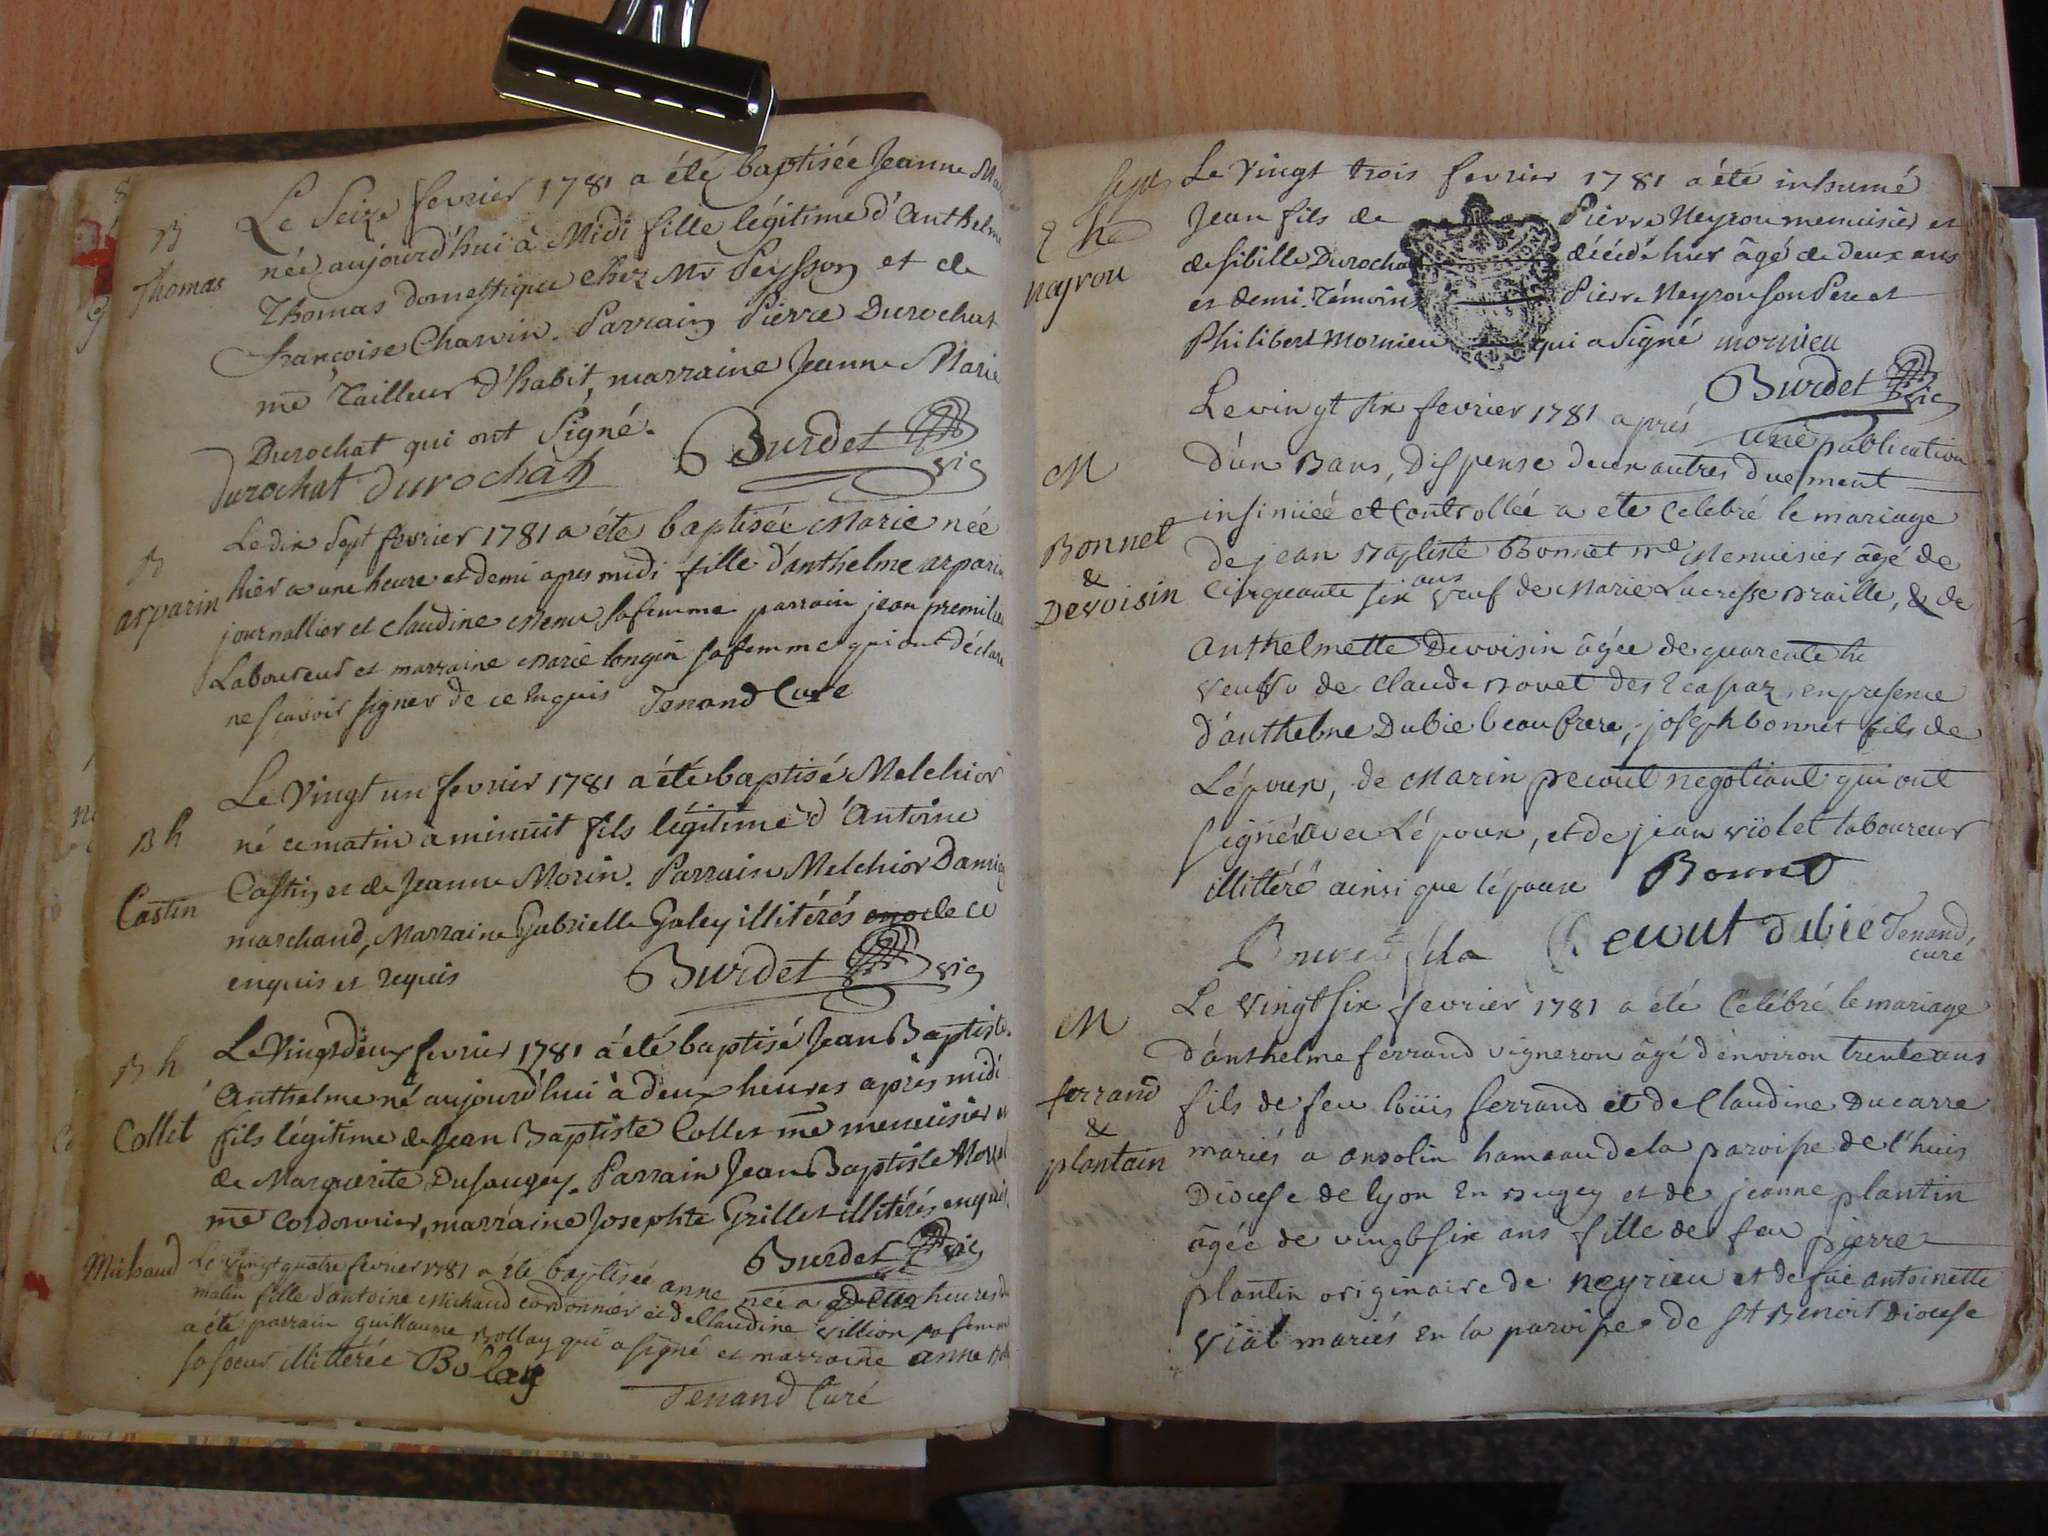 B
Thomas
Le Seize fevrier 1781 a été baptisée Jeanne
née aujourd'hui à Midi fille légitime d'Anthelme
Thomas domestique chez Mr Peysson et de
françoise Charvin. Parrain Pierre Durochat
me Tailleur d'habit, marraine Jeanne Marie
Durochat qui ont Signé.
durochat durochat Burdet vic
B
arparin
Le dix Sept fevrier 1781 a éte baptisée Marie née
hier a une heure et demi apres midi fille d'anthelme arparin
journallier et claudine sa femme parrain jean
Laboureur et marraine marie longin sa femme qui ont déclaré
ne scavoir signer de ce Enquis Tenand Curé
B h
Castin
Le Vingt un fevrier 1781 a été baptisé Melchior
né ce matin à minuit fils légitime d'Antoine
Castin et de Jeanne Morin. Parrain Melchior
marchand, Marraine Gabrielle Galey illitérés de ce
enquis et requis Burdet vic
B h
Collet
Le Vingt deux fevrier 1781 a été baptisé Jean Baptiste
Anthelme né aujourd'hui à deux heures après midi
fils légitime de Jean Baptiste Collet me menuisier et
de Marguerite Dusaugey. Parrain Jean Baptiste
me Cordonnier, marraine Josephte Grillet illitérés enquis
Burdet vic
Michaud
Le Vingt quatre fevrier 1781 a été baptisée anne née a deux heures du
matin fille d'antoine Michaud cordonnier et de Claudine villion sa femme
a été parrain guillaume Bollay qui a signé et marraine anne
sa soeur illittérée Bolay
Tenand Curé
Sepre
neyrou
Le Vingt trois fevrier 1781 a été inhumé
Jean fils de Pierre Neyrou menuisier et
de sibille Durochat décédé hier âgé de deux ans
et demi. Témoins Pierre Neyrou son Pere et
Philibert Mornieu qui a Signé mornieu
Burdet vic
M
Bonnet
&
Devoisin
Le vingt six fevrier 1781 aprés une publication
d'un Bans, Dispense deux autres duement
insinüéé et Controllée a éte Celebré le mariage
de jean Baptiste Bonnet me Menuisier âgé de
Cinquante six ans Veuf de Marie Lucresse Braille, & de
Anthelmette Devoisin âgée de quarente
veuve de Claude Bovet des Ecassaz, en presence
d'anthelme Dubie beaufrere, joseph bonnet fils de
L'époux, de Marin pecout negotiant qui ont
signé avec L'époux, et de jean violet laboureur
illittéré ainsi que l'épouse Bonnet
Bonnet fils Pecout dubie Tenand,
curé
M
ferrand
&
plantain
Le vingt six fevrier 1781 a été Celébré le mariage
d'anthelme ferrand vigneron âgé d'environ trente ans
fils de feu loüis ferrand et de Claudine Ducarre
mariés a ansolin hameau de la paroisse de l'huis
Diocese de lyon En Bugey et de jeanne plantin
âgée de vingt six ans fille de feu pierre
plantin originaire de neyrieu et de füe antoinette
Vial mariés En la paroisse de St Benoit Diocese